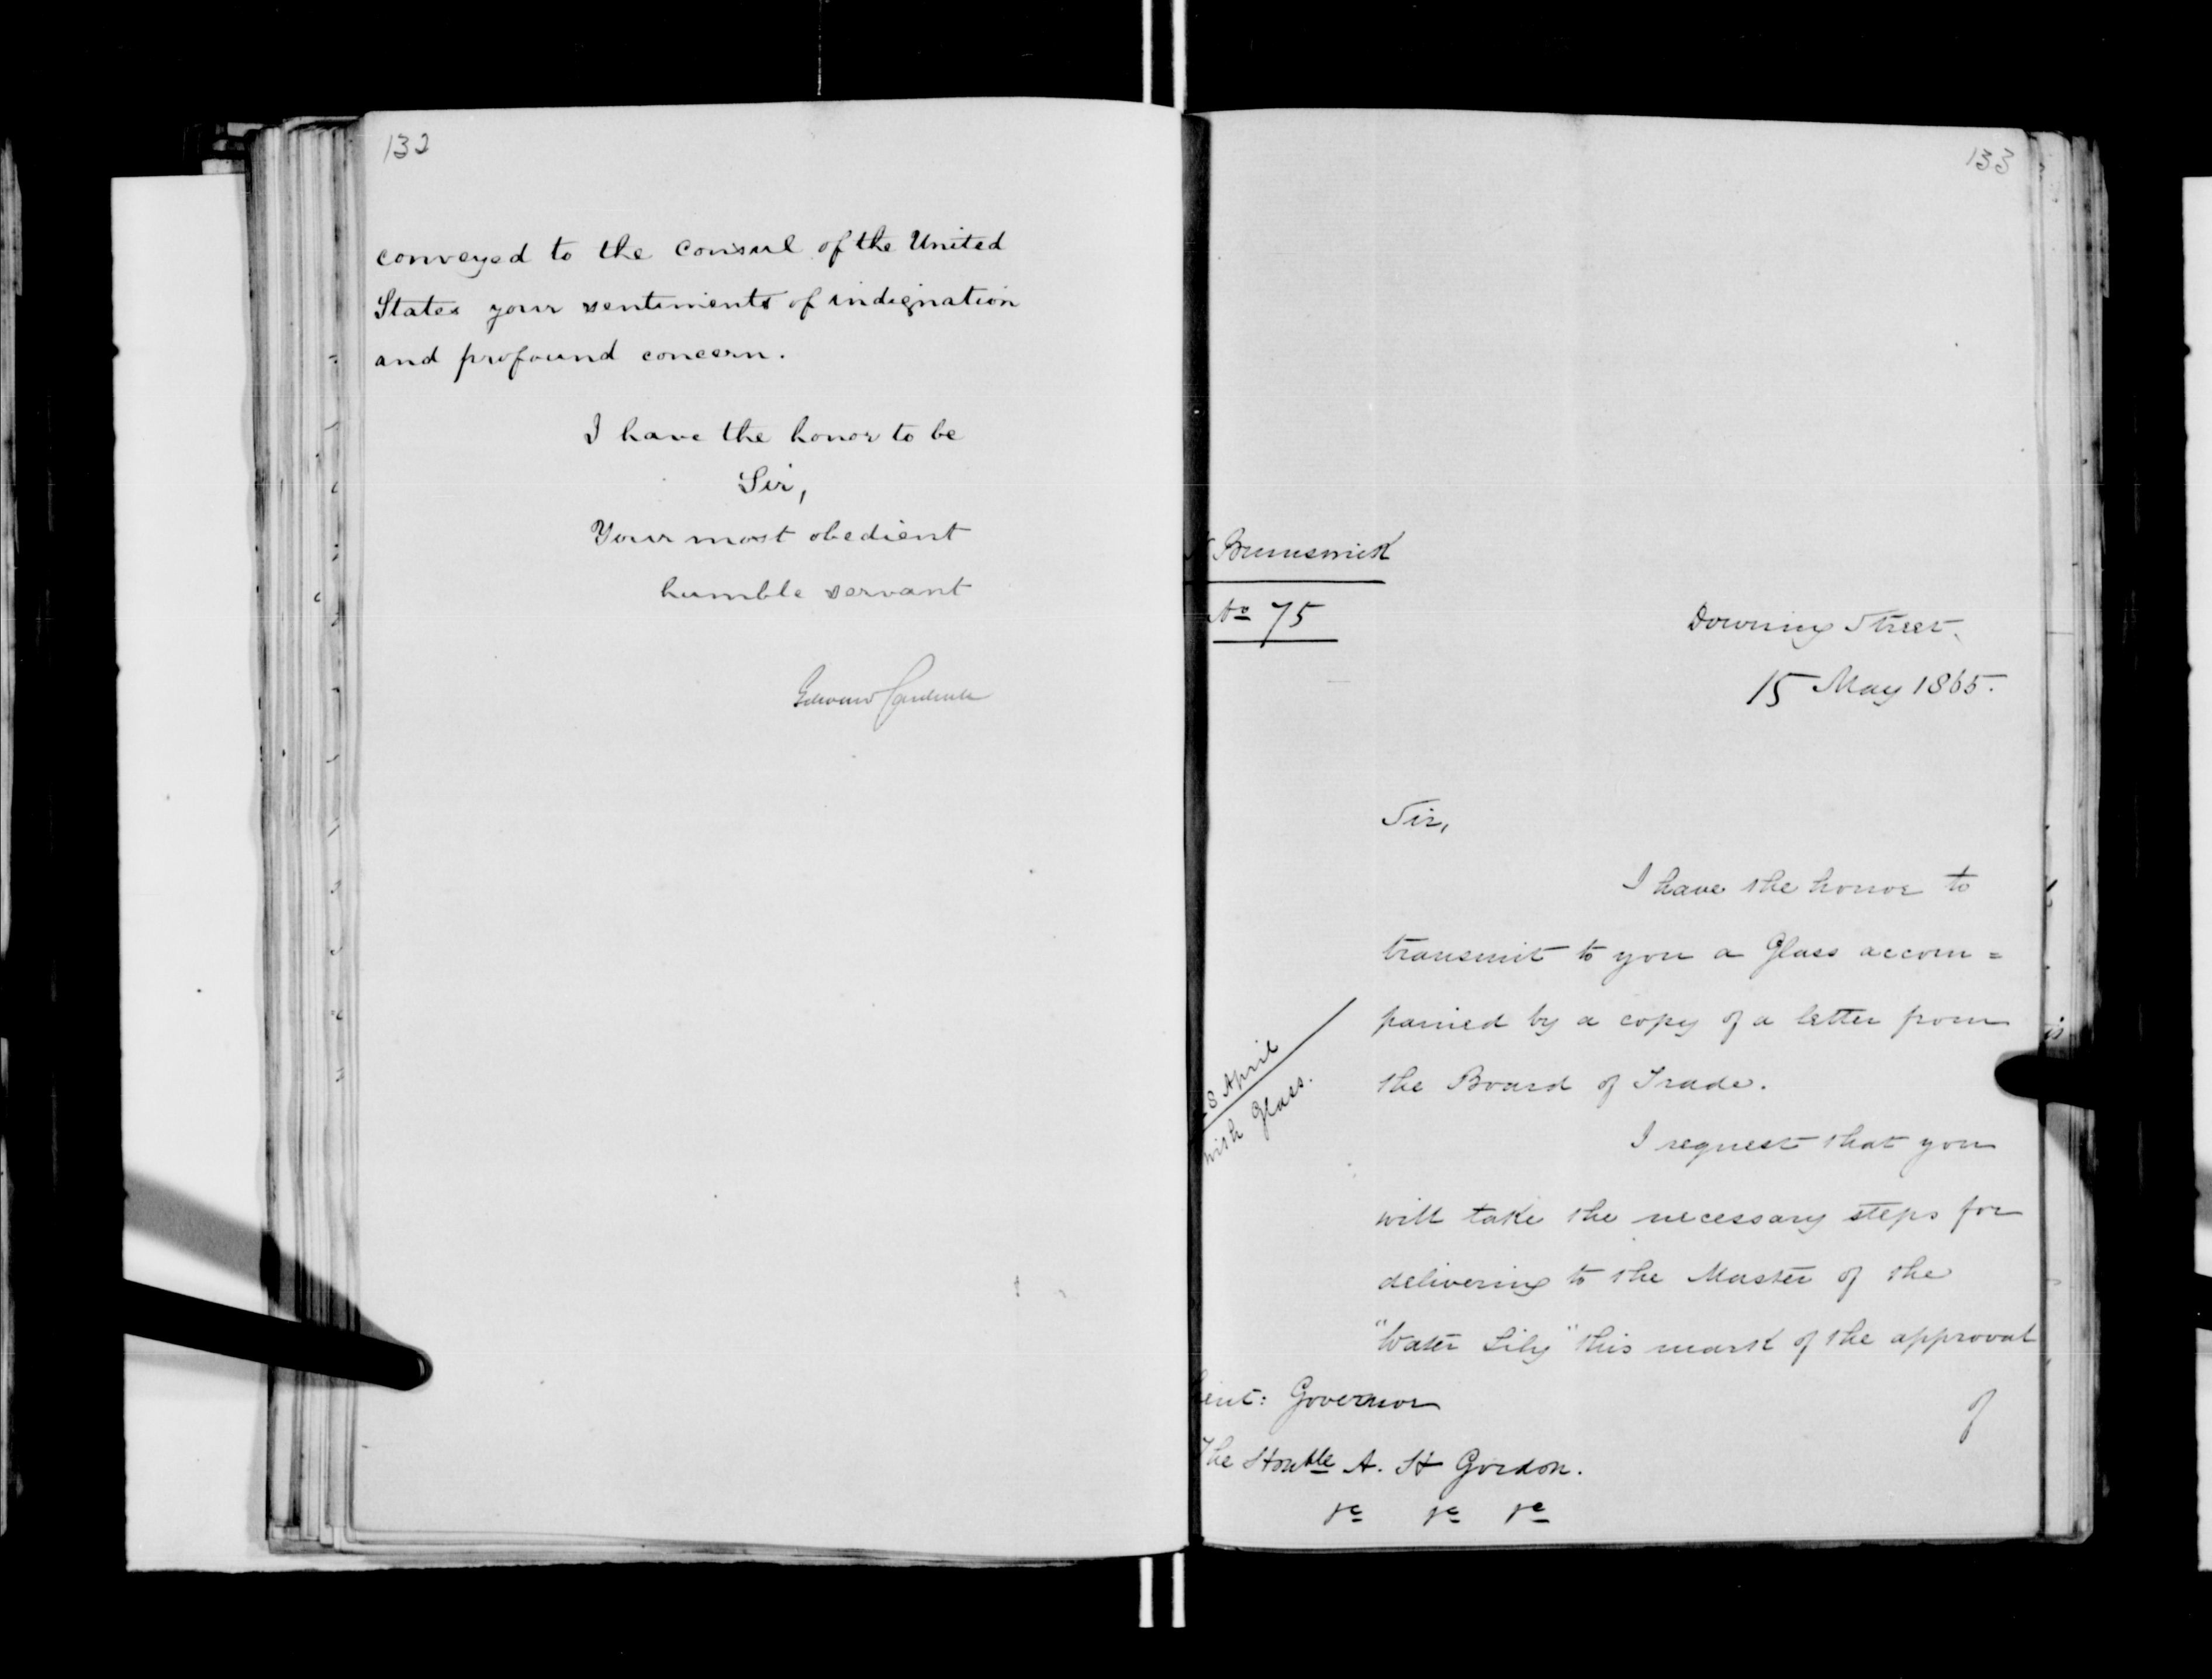 132
conveyed to the Consul of the United
States your sentiments of indignation
and profound concern.
I have the honor to be
Sir,
Your most obedient
humble servant
Edward Cardwell
133
Brunswick
No 75
Downing Street.
15 May 1865.
Sir,
I have the honor to
transmit to you a Glass accom=
panied by a copy of a letter from
the Board of Trade.
8 April
with Glass.
I request that you
will take the necessary steps for
delivering to the Master of the
"Water Lily" this mark of the approval
of
Lieut: Governor
The Honble A. H Gordon.
&c &c &c